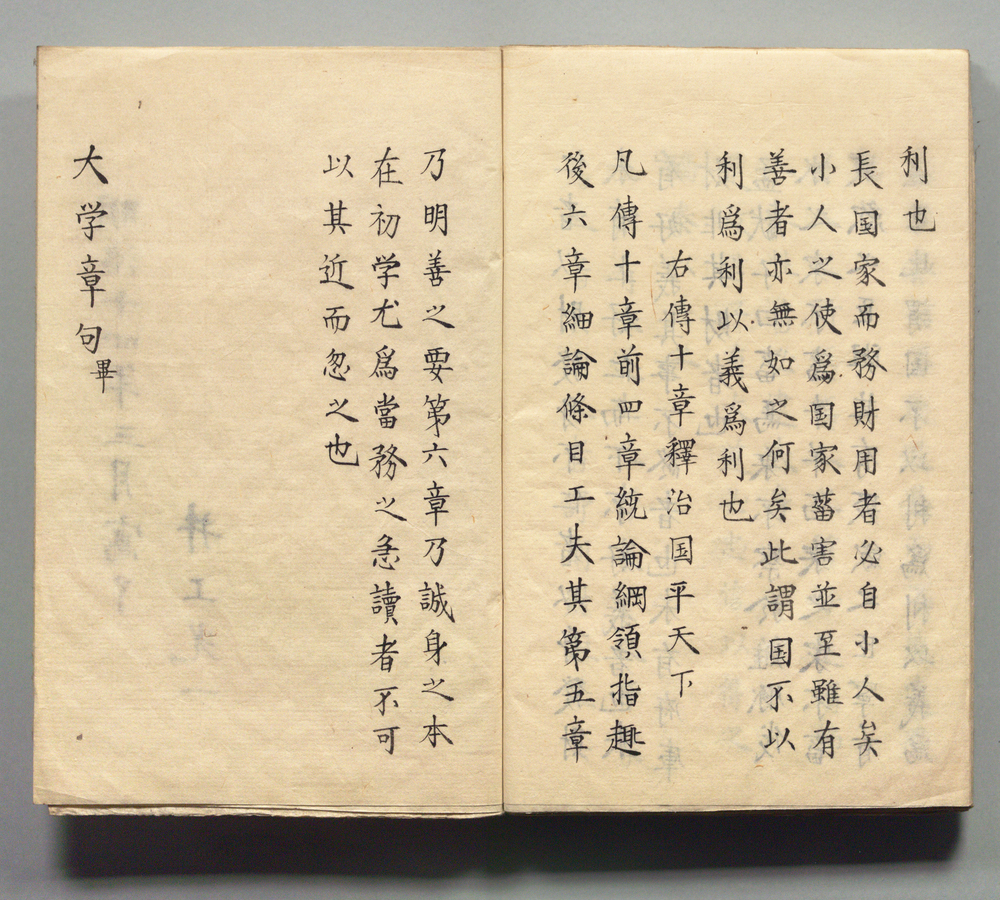 利也
長国家而務財用者必自小人矣
小人之使爲国家菑害並至雖有
善者亦無如之何矣此謂国不以
利爲利以義爲利也
右傳十章釋治国平天下
凡傳十章前四章統論綱領指趣
後六章細論條目工夫其第五章
乃明善之要第六章乃誠身之本
在初学尤爲當務之急讀者不可
以其近而忽之也
大学章句畢